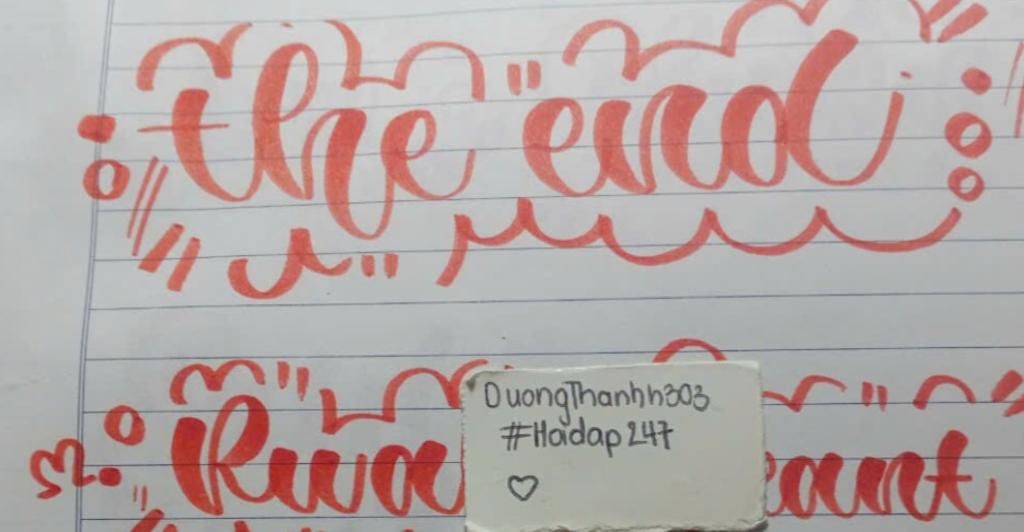 the end
DuongThanhh303
#Hoidap 247